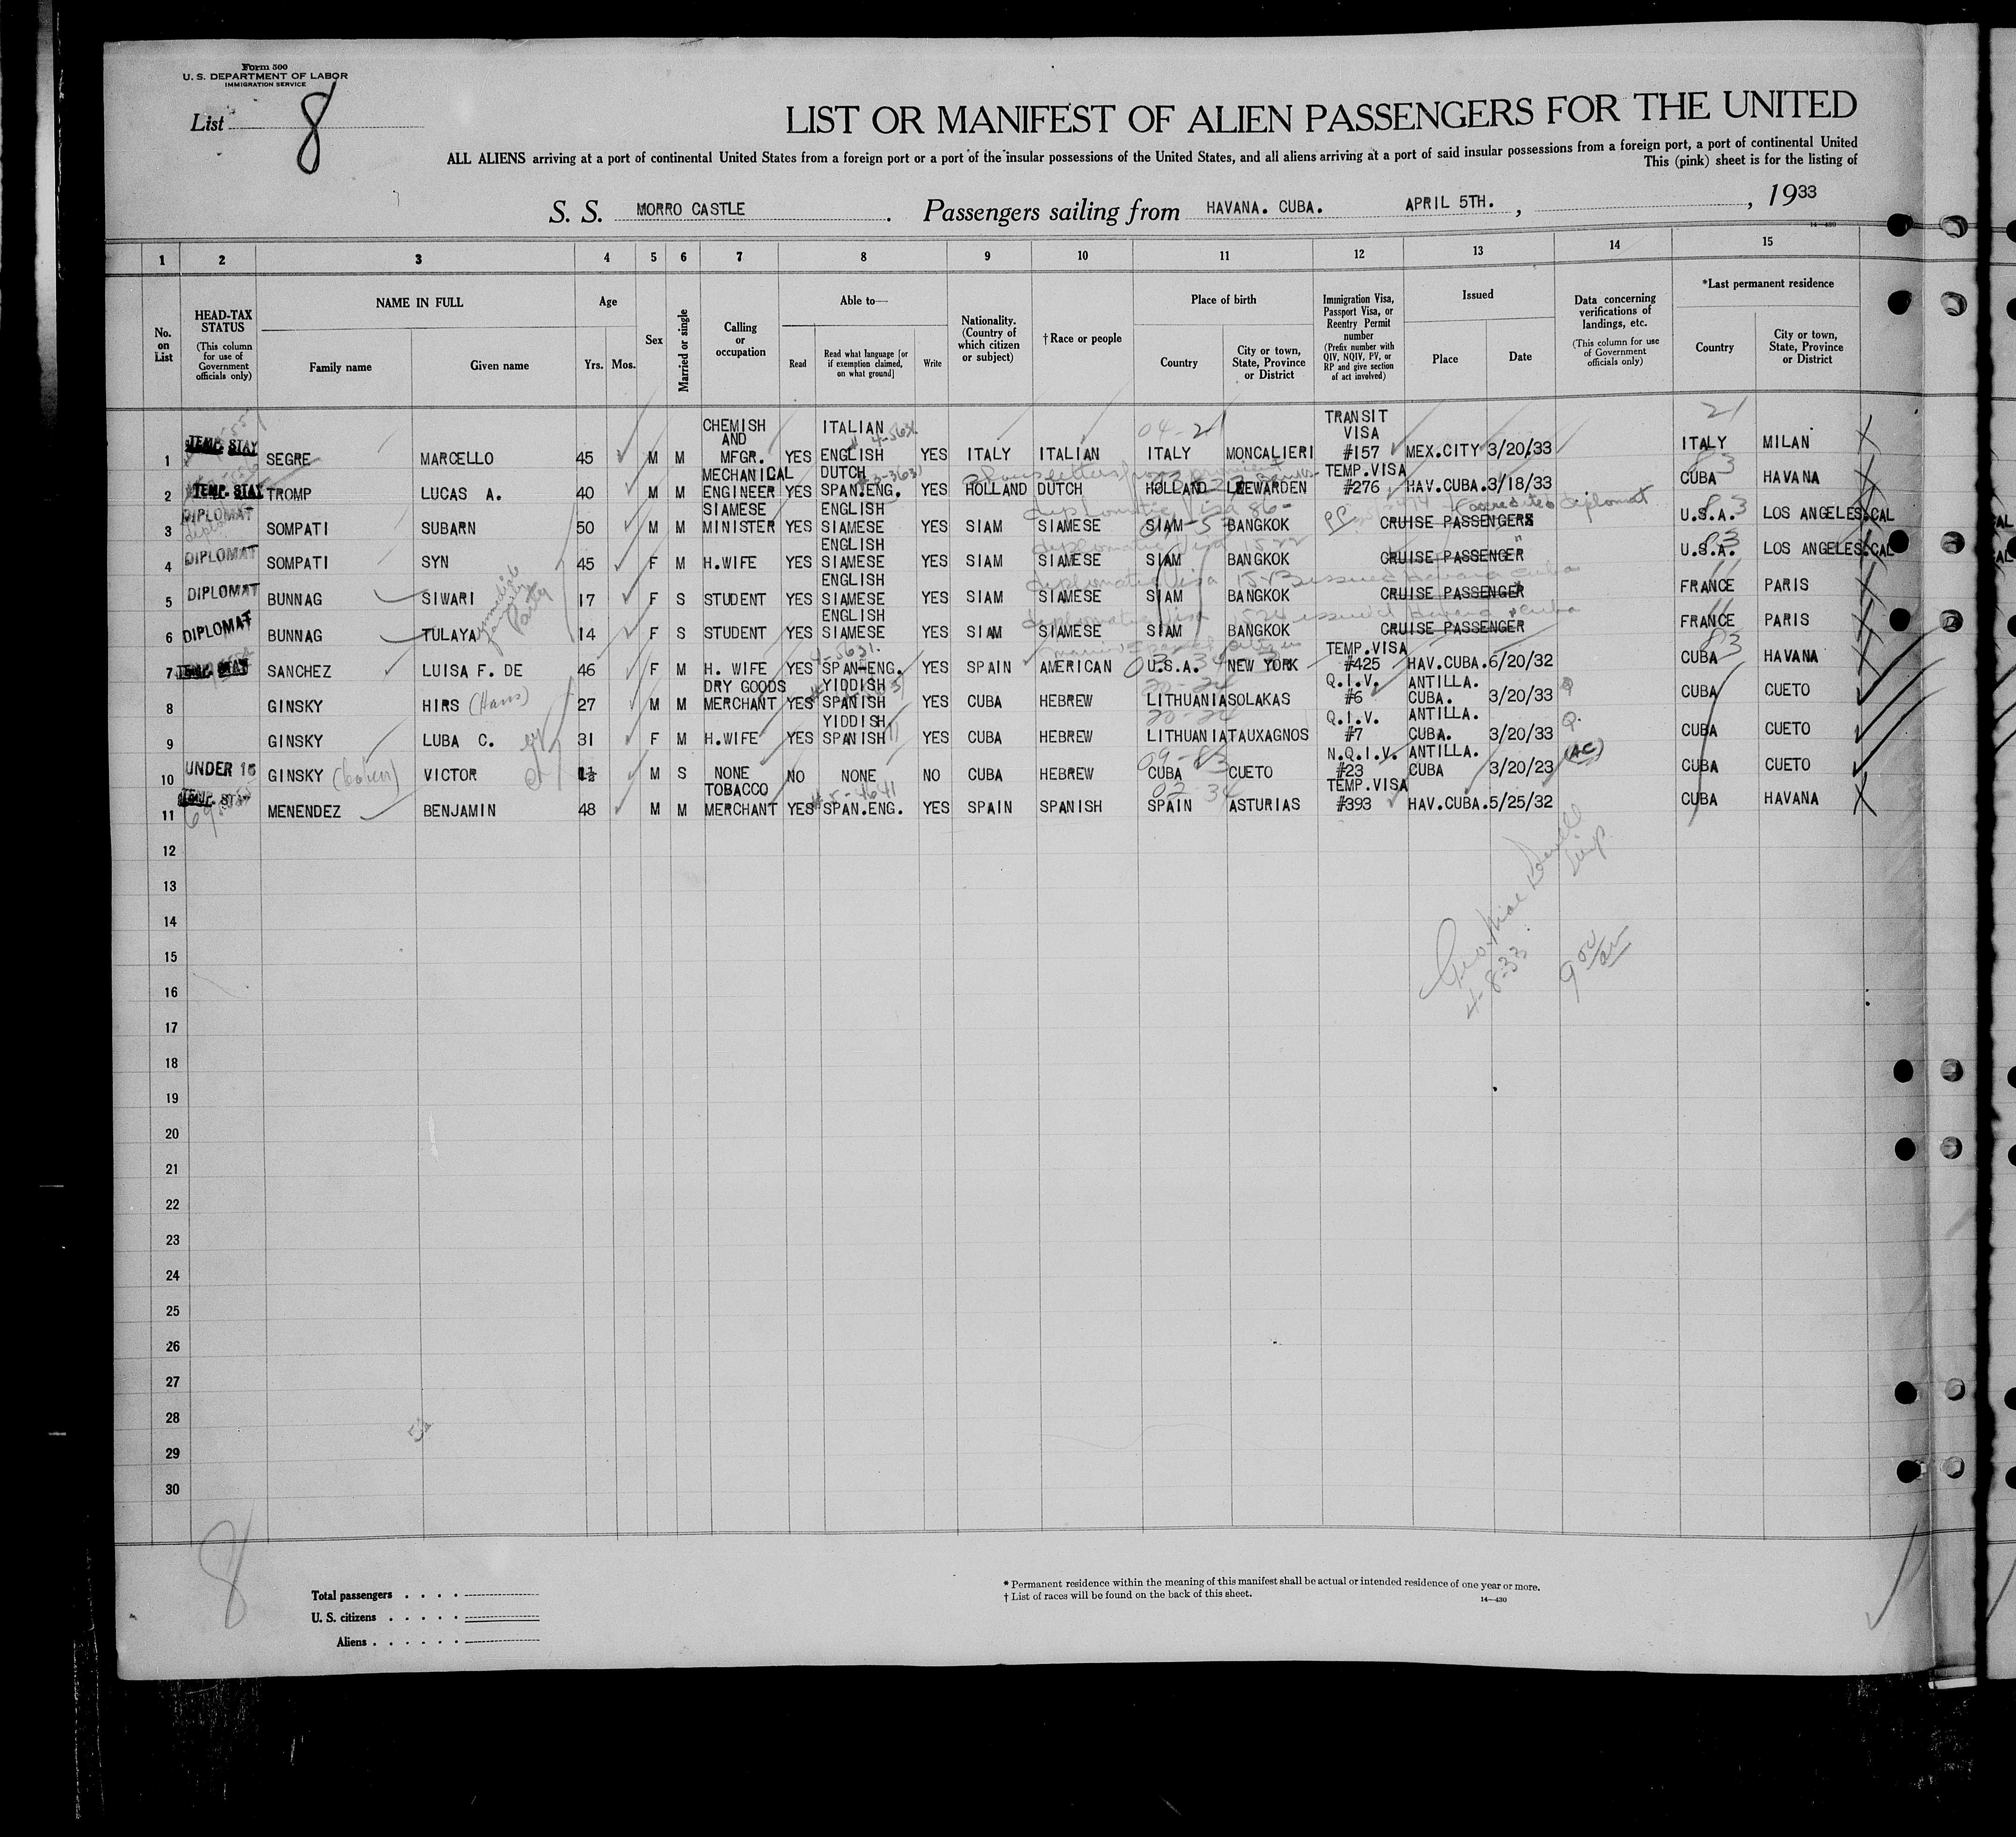 Form 500
U. S. DEPARTMENT OF LABOR
IMMIGRATION SERVICE
List 8
LIST OR MANIFEST OF ALIEN PASSENGERS FOR THE UNITED
ALL ALIENS arriving at a port of continental United States from a foreign port or a port of the insular possessions of the United States, and all aliens arriving at a port of said insular possessions from a foreign port, a port of continental United
This (pink) sheet is for the listing of
S. S. MORRO CASTLE . Passengers sailing from HAVANA. CUBA. APRIL 5TH. , , 1933
14—430
1 2 3 4 5 6 7 8 9 10 11 12 13 14 15
No. on List
HEAD-TAX STATUS (This column for use of Government officials only)
NAME IN FULL
Family name Given name
Age
Yrs. Mos.
Sex
Married or single
Calling or occupation
Able to—
Read
Read what language [or if exemption claimed, on what ground]
Write
Nationality. (Country of which citizen or subject)
†Race or people
Place of birth
Country
City or town, State, Province or District
Immigration Visa, Passport Visa, or Reentry Permit number (Prefix number with QIV, NQIV, PV, or RP and give section of act involved)
Issued
Place Date
Data concerning verifications of landings, etc. (This column for use of Government officials only)
*Last permanent residence
Country
City or town, State, Province or District
1 TEMP. STAY SEGRE MARCELLO 45 M M CHEMISH AND MFGR. YES ITALIAN ENGLISH YES ITALY ITALIAN ITALY MONCALIERI TRANSIT VISA #157 MEX.CITY 3/20/33 ITALY MILAN
2 TEMP. STAY TROMP LUCAS A. 40 M M MECHANICAL ENGINEER YES DUTCH SPAN.ENG. YES HOLLAND DUTCH HOLLAND LEEWARDEN TEMP.VISA #276 HAV.CUBA. 3/18/33 CUBA HAVANA
3 DIPLOMAT SOMPATI SUBARN 50 M M SIAMESE MINISTER YES ENGLISH SIAMESE YES SIAM SIAMESE SIAM BANGKOK CRUISE PASSENGER accredited diplomat U.S.A. LOS ANGELES.CAL
diplomatic Visa 86-
4 DIPLOMAT SOMPATI SYN 45 F M H.WIFE YES ENGLISH SIAMESE YES SIAM SIAMESE SIAM BANGKOK CRUISE PASSENGER U.S.A. LOS ANGELES.CAL
diplomatic Visa 1522
5 DIPLOMAT BUNNAG SIWARI 17 F S STUDENT YES ENGLISH SIAMESE YES SIAM SIAMESE SIAM BANGKOK CRUISE PASSENGER FRANCE PARIS
diplomatic Visa 1523 issued Havana Cuba
6 DIPLOMAT BUNNAG TULAYA 14 F S STUDENT YES ENGLISH SIAMESE YES SIAM SIAMESE SIAM BANGKOK CRUISE PASSENGER FRANCE PARIS
diplomatic Visa 1524 issued Havana Cuba
immediate family Party
7 TEMP. STAY SANCHEZ LUISA F. DE 46 F M H. WIFE YES SPAN-ENG. YES SPAIN AMERICAN U.S.A. NEW YORK TEMP.VISA #425 HAV.CUBA. 6/20/32 CUBA HAVANA
8 GINSKY HIRS (Hans) 27 M M DRY GOODS MERCHANT YES YIDDISH SPANISH YES CUBA HEBREW LITHUANIA SOLAKAS Q.I.V. #6 ANTILLA. CUBA. 3/20/33 Q CUBA CUETO
9 GINSKY LUBA C. 31 F M H.WIFE YES YIDDISH SPANISH YES CUBA HEBREW LITHUANIA TAUXAGNOS Q.I.V. #7 ANTILLA. CUBA. 3/20/33 Q. CUBA CUETO
10 UNDER 16 GINSKY VICTOR 1½ M S NONE NO NONE NO CUBA HEBREW CUBA CUETO N.Q.I.V. #23 ANTILLA. CUBA 3/20/23 (AC) CUBA CUETO
11 MENENDEZ BENJAMIN 48 M M TOBACCO MERCHANT YES SPAN.ENG. YES SPAIN SPANISH SPAIN ASTURIAS TEMP.VISA #393 HAV.CUBA. 5/25/32 CUBA HAVANA
12
13
14
4-8-33
15
16
17
18
19
20
21
22
23
24
25
26
27
28
29
30
8
Total passengers . . . .
U. S. citizens . . . . .
Aliens . . . . . .
* Permanent residence within the meaning of this manifest shall be actual or intended residence of one year or more.
† List of races will be found on the back of this sheet.
14—430